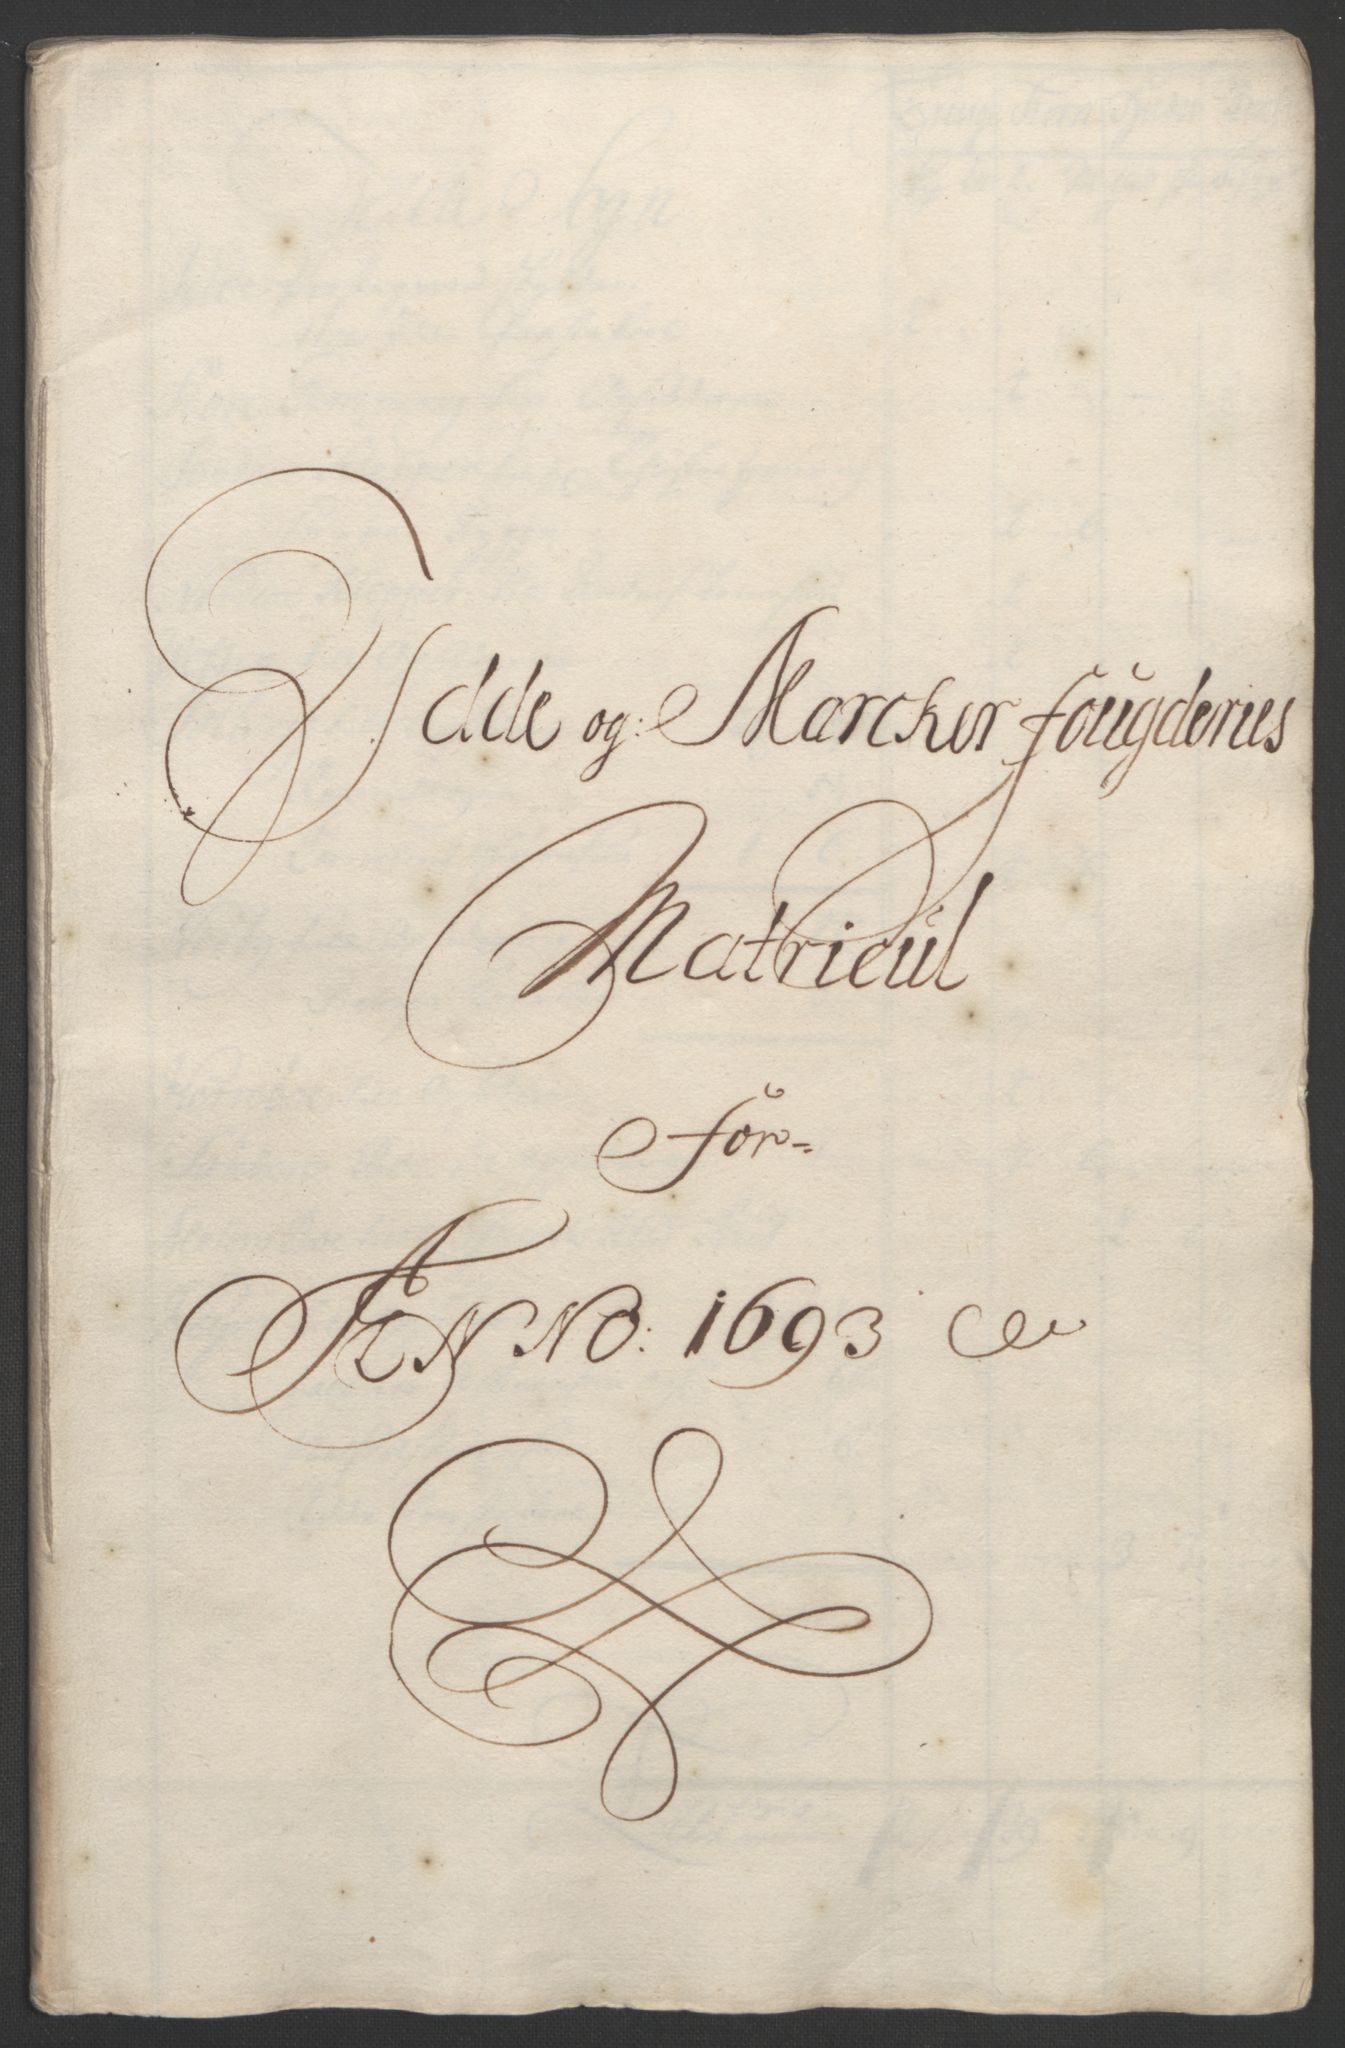 Idde og: Marcker fougderies
Matricul
for
ANNO: 1693